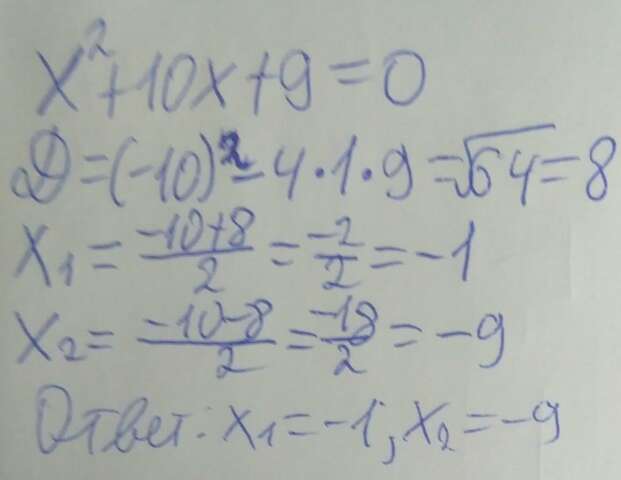 x²+10x+9=0
D=(-10)²-4·1·9=√64=8
x₁=\frac{-10+8}{2}=\frac{-2}{2}=-1
x₂=\frac{-10-8}{2}=\frac{-18}{2}=-9
Ответ: x₁=-1; x₂=-9